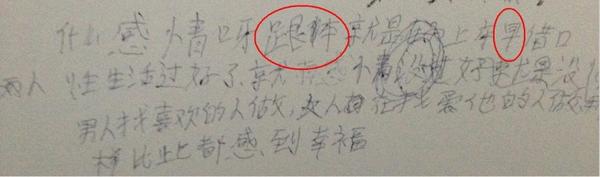 什么感情呀跟本就是在为上床早借口
两人性生活过好了就有感情过好是没
男人找喜欢的人做,女人找爱他的人做
样都感到幸福